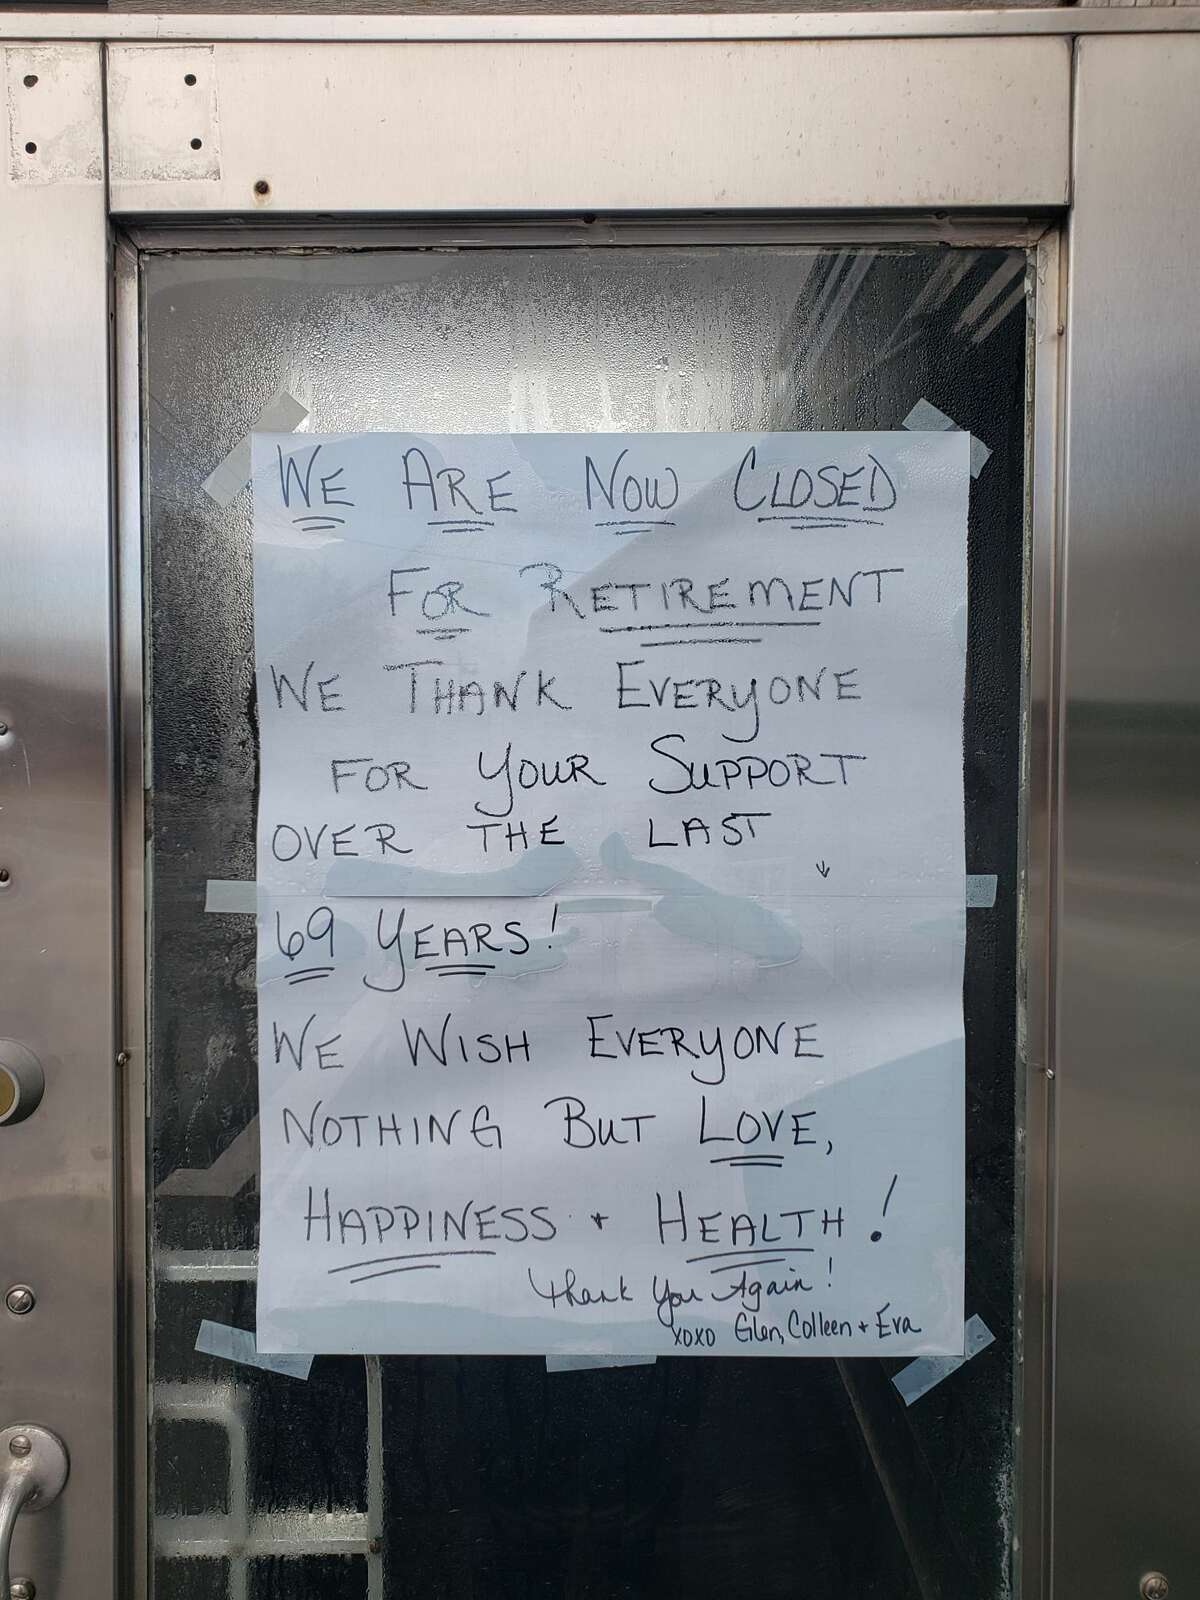 WE ARE NOW CLOSED
FOR RETIREMENT
WE THANK EVERYONE
FOR YOUR SUPPORT
OVER THE LAST
69 YEARS!
WE WISH EVERYONE
NOTHING BUT LOVE,
HAPPINESS + HEALTH!
Thank You Again!
XOXO Glen, Colleen + Eva